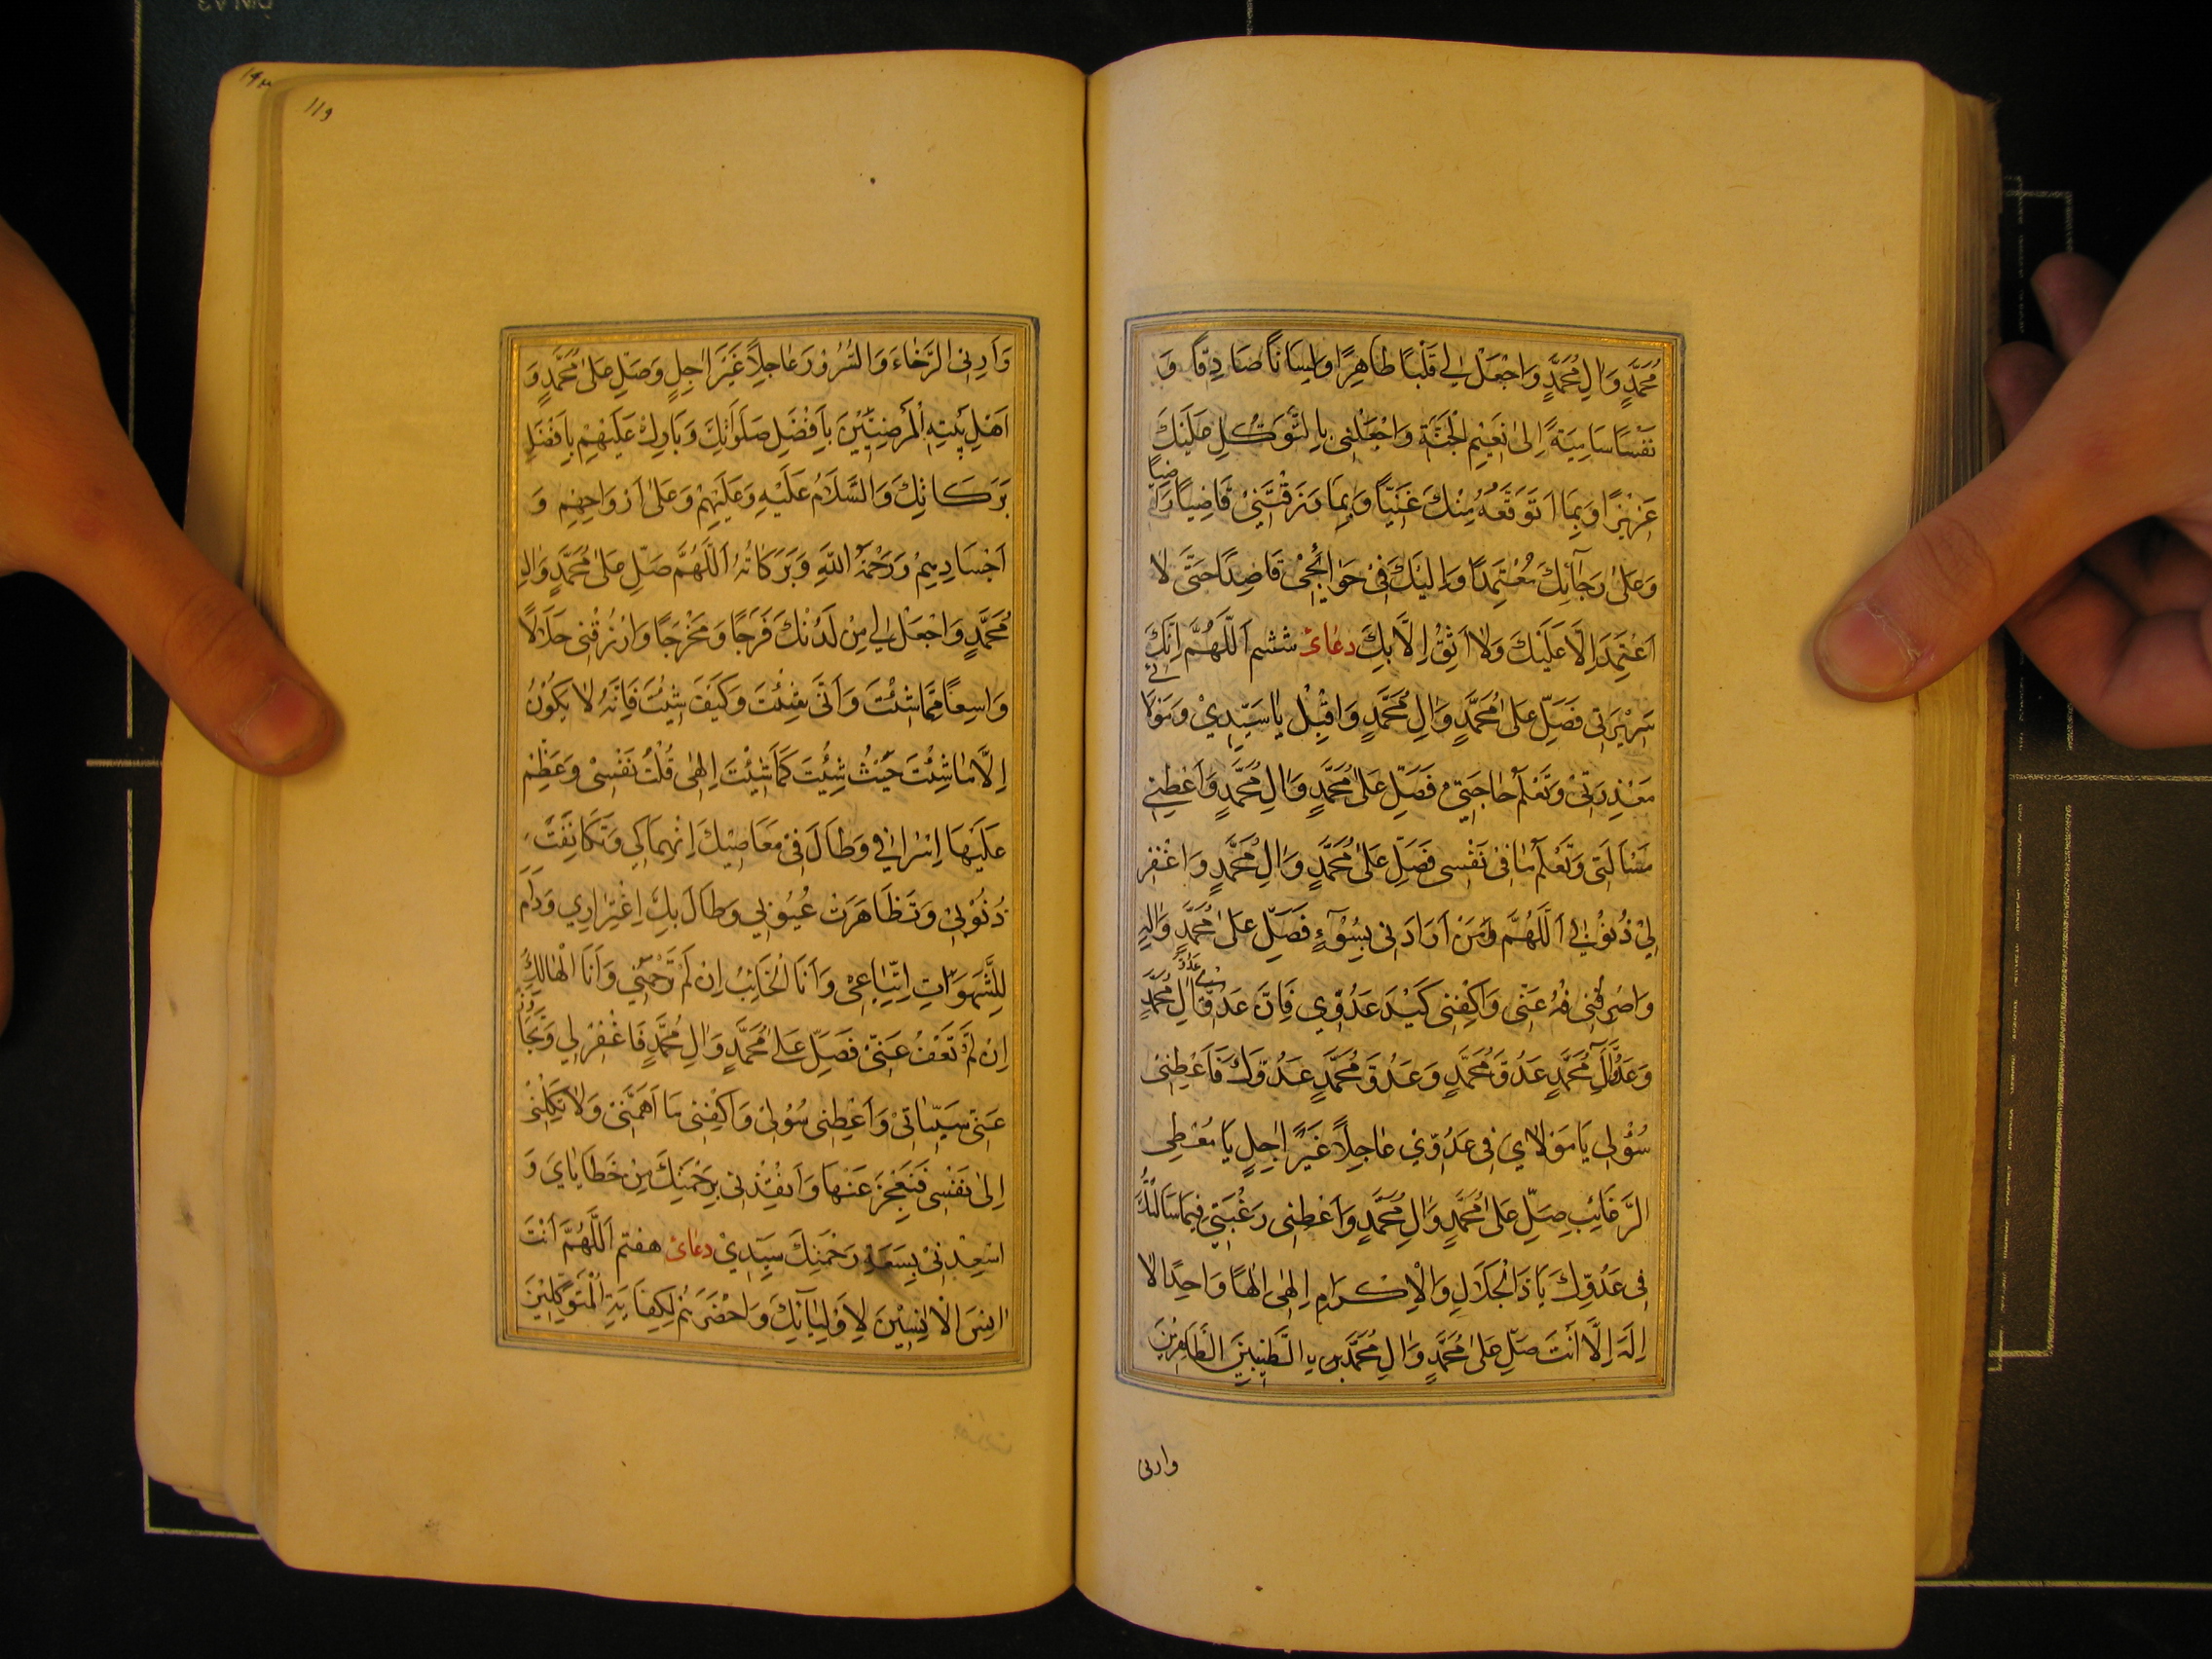 مُحَمَّدٍ وَاٰلِ مُحَمَّدٍ وَاجْعَلْ لِي قَلْبًا طَاهِرًا وَلِسَانًا صَادِقًا وَ
نَفْسًا سَامِيَةً اِلىٰ نَعِيْمِ الْجَنَّةِ وَاجْعَلْنِى بِالتَّوَكُّلِ عَلَيْكَ
عَزِيْزًا وَبِمَا اَتَوَقَّعُهُ مِنْكَ غَنِيًّا وَبِمَا رَزَقْتَنِىْ قَاضِيًا رَا
ضِيًا
وَعَلىٰ رَجَآئِكَ مُعْتَمِدًا وَاِلَيْكَ فِىْ حَوَائِجِىْ قَاصِدًا حَتَّى لاٰ
اَعْتَمِدَ اِلَّا عَلَيْكَ وَلاٰ اَثِقُ اِلَّا بِكَ دعاى ششم اَللَّهُمَّ اِنَّكَ
سَرِيْرَتِى فَصَلِّ عَلىٰ مُحَمَّدٍ وَاٰلِ مُحَمَّدٍ وَاقْبِلْ يٰا سَيِّدِيْ وَمَوْلَا
ئِي
مَعْذِرَتِىْ وَتَعْلَمُ حٰاجَتِيْ فَصَلِّ عَلىٰ مُحَمَّدٍ وَاٰلِ مُحَمَّدٍ وَاَعْطِنِي
مَسْاَلَتِى وَتَعْلَمُ مٰا فِىْ نَفْسِى فَصَلِّ عَلىٰ مُحَمَّدٍ وَاٰلِ مُحَمَّدٍ وَاغْفِرْ
لِيْ ذُنُوْبِي اَللَّهُمَّ وَمَنْ اَرَادَنِى بِسُوْٓءٍ فَصَلِّ عَلىٰ مُحَمَّدٍ وَاٰلِهِ
وَاصْرِفْنِى عَنِّىْ وَاكْفِنِى كَيْدَ عَدُوِّي فَاِنَّ عَدُوِّىْ عَدُوُّ اٰلِ مُحَمَّدٍ
وَعَدُوُّ اٰلِ مُحَمَّدٍ عَدُوُّ مُحَمَّدٍ وَعَدُوُّ مُحَمَّدٍ عَدُوُّكَ فَاَعْطِنِىْ
سُؤْلِي يَا مَوْلاٰيَ فِى عَدُوِّيْ عٰاجِلاً غَيْرَ اٰجِلٍ يَا مُعْطِى
الرَّغَائِبِ صَلِّ عَلىٰ مُحَمَّدٍ وَاٰلِ مُحَمَّدٍ وَاَعْطِنِى رَغْبَتِيْ فِيْمَا سَاَلْتُكَ
فِى عَدُوِّكَ يَا ذَالْجَلَالِ وَالْاِكْرَامِ اِلٰهِى اِلٰهًا وَاحِدًا لاٰ
اِلٰهَ اِلَّا اَنْتَ صَلِّ عَلىٰ مُحَمَّدٍ وَاٰلِ مُحَمَّدٍ الطَّيِّبِيْنَ الطَّاهِرِيْنَ
وارنى
وَاَرِنِى الرَّخٰاءَ وَالسُّرُوْرَ عٰاجِلاً غَيْرَ اٰجِلٍ وَصَلِّ عَلىٰ مُحَمَّدٍ وَ
اَهْلِ بَيْتِهِ الْمَرْضِيِّيْنَ بِاَفْضَلِ صَلَوَاتِكَ وَبَارِكْ عَلَيْهِمْ بِاَفْضَلِ
بَرَكَاتِكَ وَالسَّلَامُ عَلَيْهِ وَعَلَيْهِمْ وَعَلىٰ اَرْوَاحِهِمْ وَ
اَجْسَادِهِمْ وَرَحْمَةُ اللهِ وَبَرَكَاتُهُ اَللَّهُمَّ صَلِّ عَلىٰ مُحَمَّدٍ وَاٰلِ
مُحَمَّدٍ وَاجْعَلْ لِي مِنْ لَدُنْكَ فَرَجًا وَمَخْرَجًا وَارْزُقْنِى حَلَالًا
وَاسِعًا مِمَّا شِئْتَ وَاَنّىٰ شِئْتَ وَكَيْفَ شِئْتَ فَاِنَّهُ لاٰ يَكُوْنُ
اِلَّا مٰا شِئْتَ حَيْثُ شِئْتَ كَمَا شِئْتَ اِلٰهِى قُلْتُ نَفْسِىْ وَعَظُمَ
عَلَيْهَا اِسْرَافِي وَطَالَ فِىْ مَعَاصِيْكَ اِنْهِمَاكِي وَتَكَاثَفَتْ
ذُنُوْبِىْ وَتَظَاهَرَتْ عُيُوْبِي وَطَالَ بِكَ اِغْتِرَارِي وَدَامَ
لِلشَّهَوَاتِ اِتِّبَاعِىْ وَاَنَا الْخَائِبُ اِنْ لَمْ تَرْحَمْنِى وَاَنَا الْهَالِكُ
اِنْ لَمْ تَعْفُ عَنِّىْ فَصَلِّ عَلىٰ مُحَمَّدٍ وَاٰلِ مُحَمَّدٍ فَاغْفِرْ لِي وَتَجَا
وَزْ
عَنْ سَيِّئَاتِىْ وَاَعْطِنِى سُؤْلِىْ وَاكْفِنِى مَا اَهَمَّنِىْ وَلاٰ تَكِلْنِىْ
اِلىٰ نَفْسِى فَتَعْجِزَ عَنْهَا وَاَنْقِذْنِى بِرَحْمَتِكَ مِنْ خَطَايٰايَ وَ
اَسْعِدْنِىْ بِسَعَةِ رَحْمَتِكَ سَيِّدِيْ دعاى هفتم اَللَّهُمَّ اَنْتَ
اٰنِسُ الْاٰنِسِيْنَ لِاَوْلِيٰآئِكَ وَاَحْضَرُهُمْ لِكِفَايَةِ الْمُتَوَكِّلِيْنَ